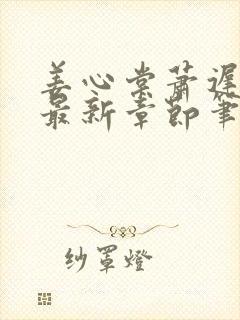 姜心棠萧遲
最新章節筆
纱罩燈